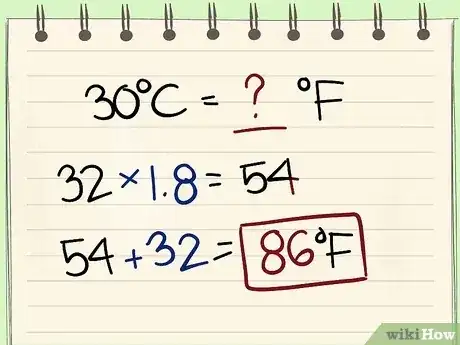 30°C = ? °F
32 × 1.8 = 54
54 + 32 = 86°F
wikiHow